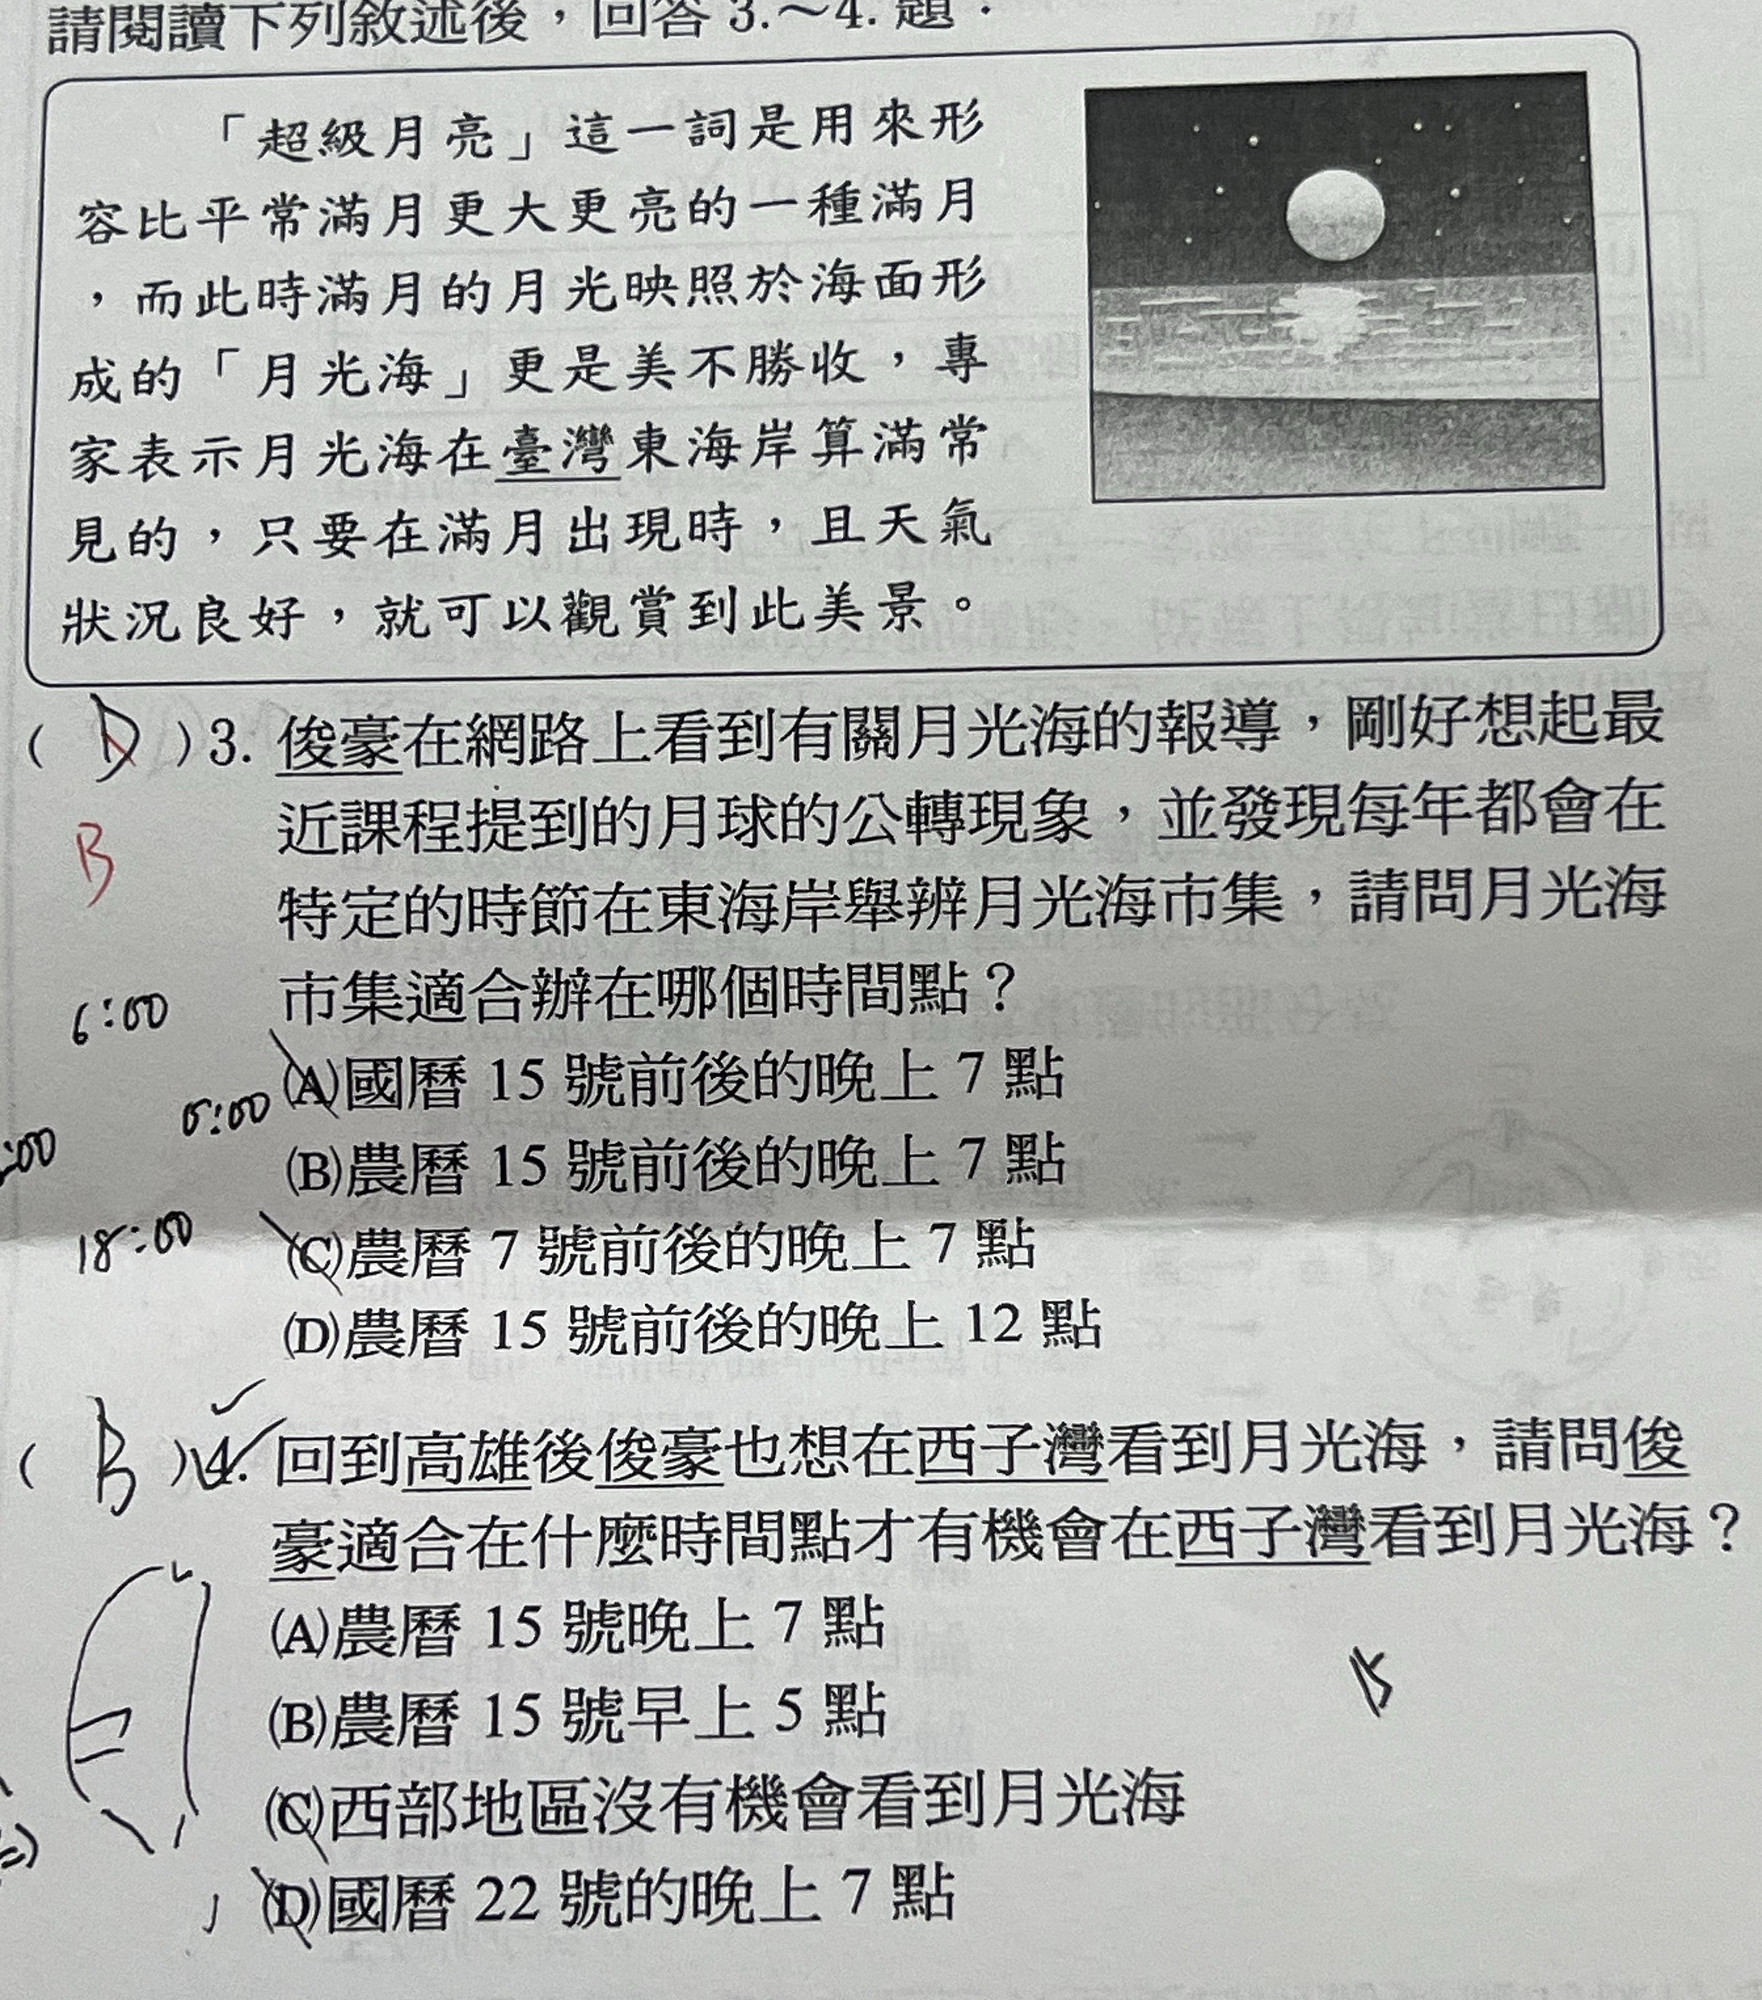 請閱讀下列敘述後，回答 3.～4. 題：
「超級月亮」這一詞是用來形
容比平常滿月更大更亮的一種滿月
，而此時滿月的月光映照於海面形
成的「月光海」更是美不勝收，專
家表示月光海在臺灣東海岸算滿常
見的，只要在滿月出現時，且天氣
狀況良好，就可以觀賞到此美景。
( D )3. 俊豪在網路上看到有關月光海的報導，剛好想起最
近課程提到的月球的公轉現象，並發現每年都會在
B
特定的時節在東海岸舉辦月光海市集，請問月光海
市集適合辦在哪個時間點？
6:00
(A)國曆 15 號前後的晚上 7 點
:00
(B)農曆 15 號前後的晚上 7 點
18:00
(C)農曆 7 號前後的晚上 7 點
(D)農曆 15 號前後的晚上 12 點
( B )4. 回到高雄後俊豪也想在西子灣看到月光海，請問俊
豪適合在什麼時間點才有機會在西子灣看到月光海？
(A)農曆 15 號晚上 7 點
(B)農曆 15 號早上 5 點
(C)西部地區沒有機會看到月光海
(D)國曆 22 號的晚上 7 點